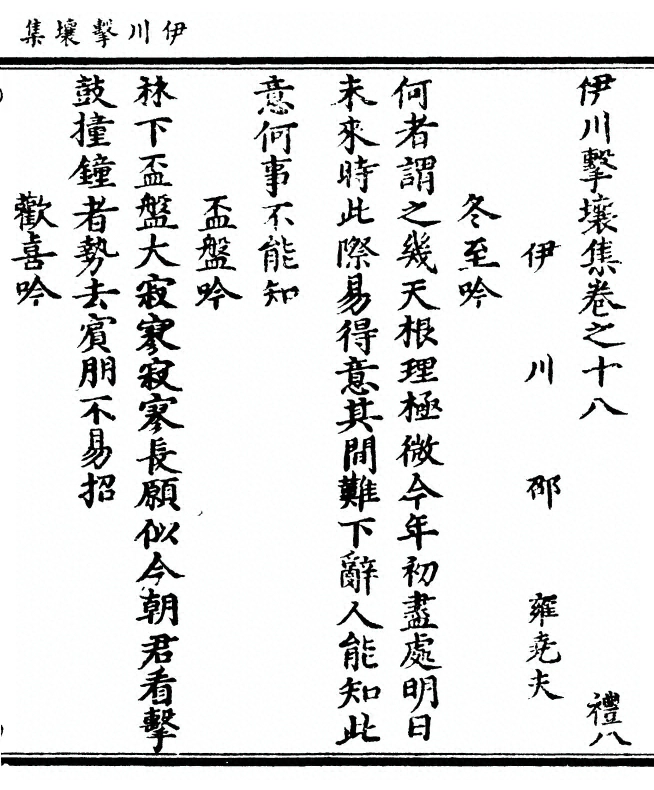 伊川擊壤集
伊川擊壤集卷之十八
禮八
伊川邵雍堯夫
冬至吟
何者謂之幾天根理極微今年初盡處明日
未來時此際易得意其間難下辭人能知此
意何事不能知
盃盤吟
林下盃盤大寂寥寂寥長願似今朝君看擊
鼓撞鐘者勢去賓朋不易招
歡喜吟